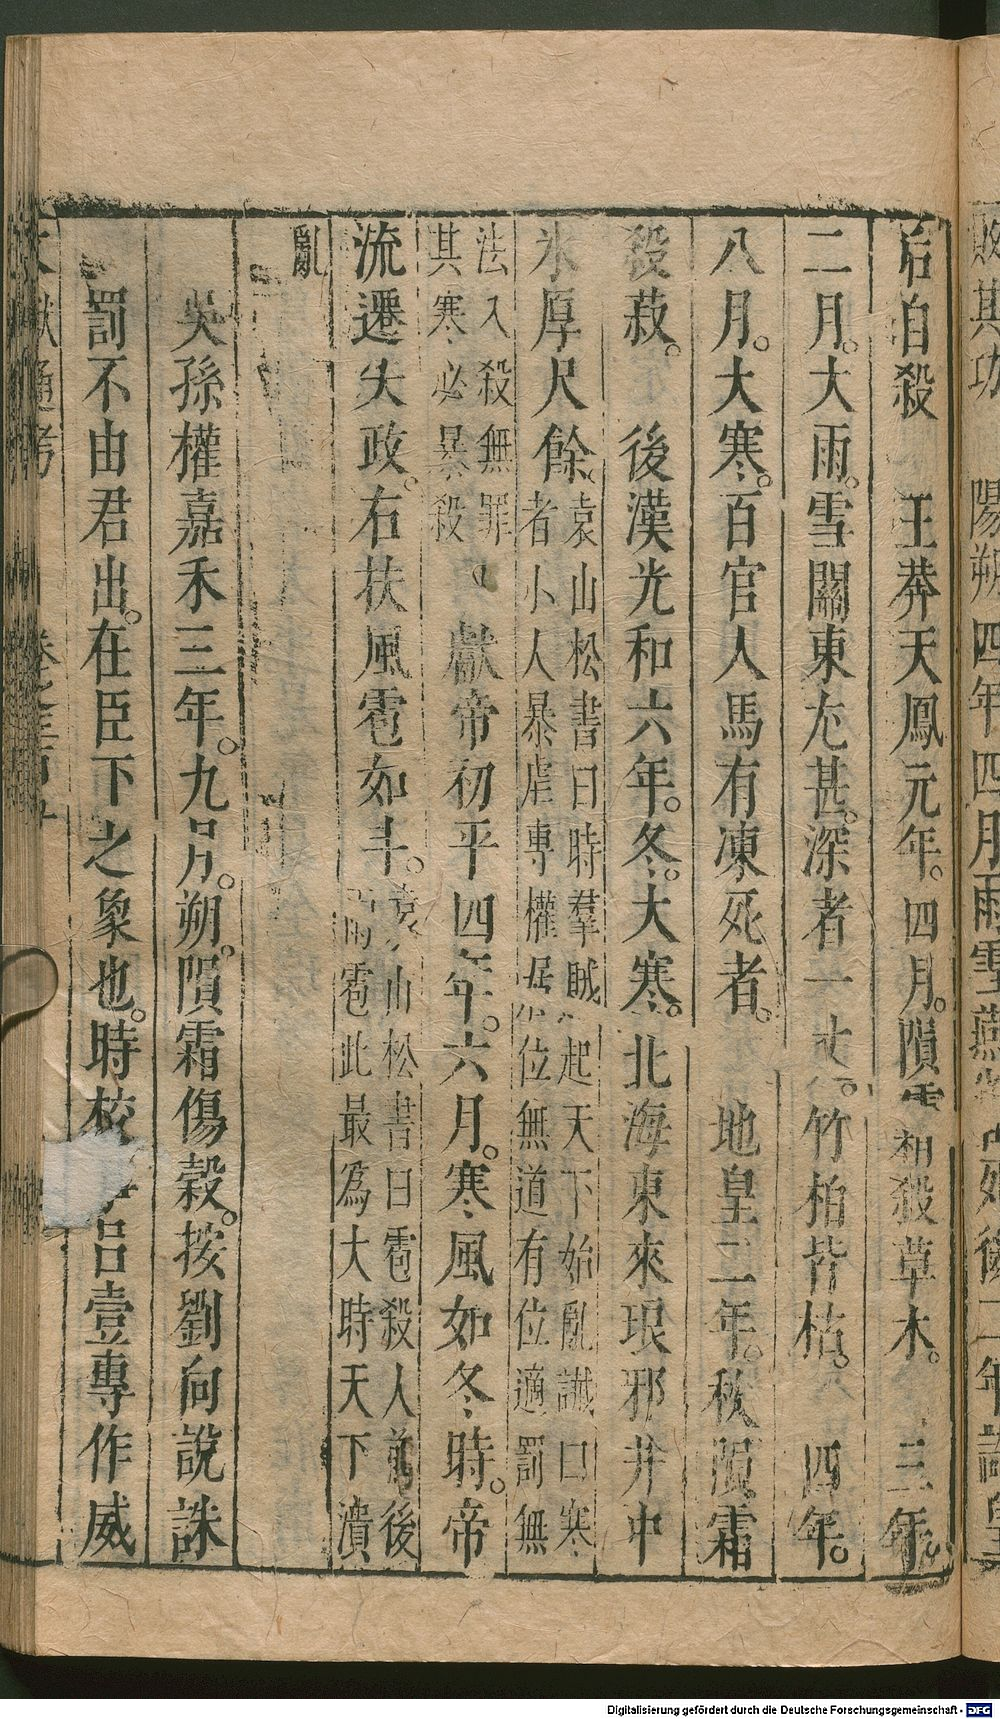 后自殺　王莽天鳳元年。四月。隕霜殺草木。　三年
二月。大雨。雪關東尤甚。深者一丈。竹柏皆枯。　四年。
八月。大寒。百官人馬有凍死者。　地皇二年。秋隕霜
殺菽。　後漢光和六年。冬。大寒。北海東來琅邪井中
氷厚尺餘。袁山松書曰時羣賊起天下始亂讖曰寒
者小人暴虐專權居位無道有位適罰無
法入殺無罪
其寒必暴殺。獻帝初平四年。六月。寒風如冬時。帝
流遷失政。右扶風雹如斗。袁山松書曰雹殺人前後
雨雹此最為大時天下潰
亂
吳孫權嘉禾三年。九月。朔。隕霜傷穀。按劉向說誅
罰不由君出。在臣下之象也。時校事呂壹專作威
文獻通考　卷之三百
敗其功　陽朔四年四月雨雪燕雀死後二年許皇
Digitalisierung gefördert durch die Deutsche Forschungsgemeinschaft - DFG